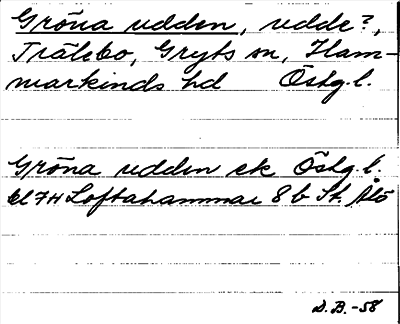 Gröna udden, udde?,
Trälebo, Gryts sn, Ham-
markinds hd Östg.l.
Gröna udden ek Östg.l.
bl 7H Loftahammar 8 b St. Ålö
D.B.-58